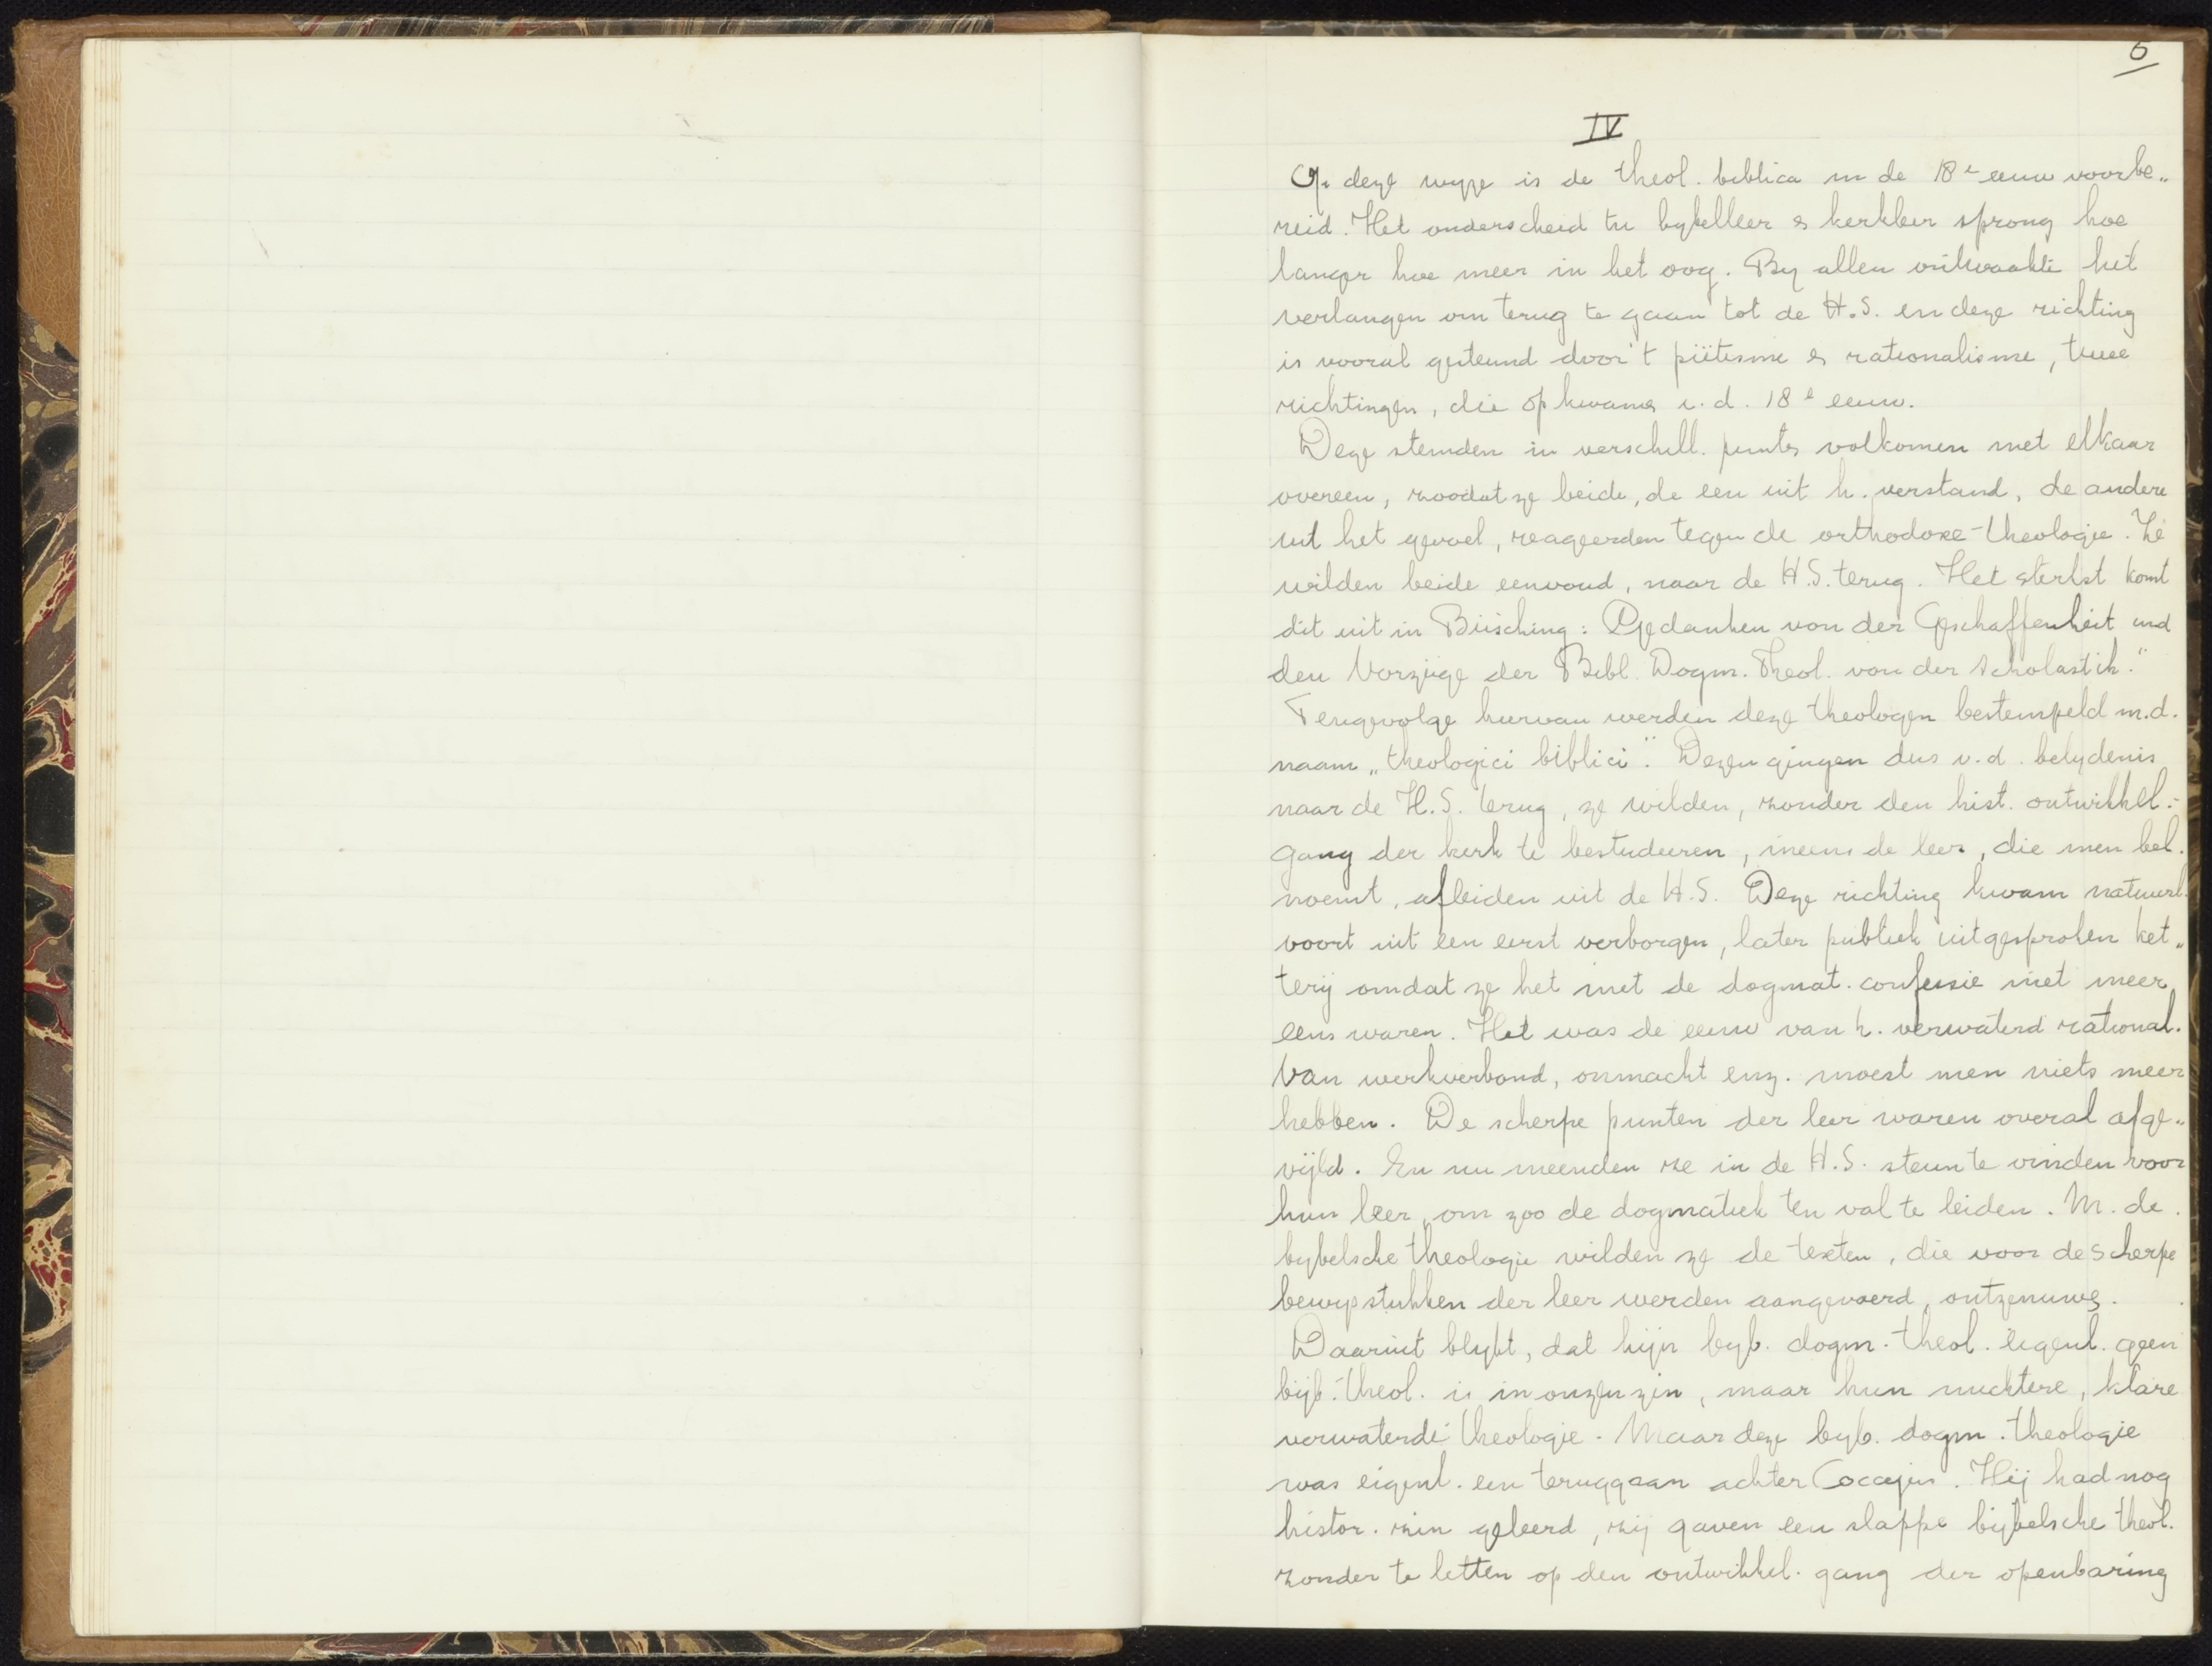 6
IV
Op deze wyze is de theol. biblica in de 18e eeuw voorbe„
reid. Het onderscheid tu bybelleer & kerkleer sprong hoe
langer hoe meer in het oog. By allen ontwaakte het
verlangen om terug te gaan tot de H.S. en deze richting
is vooral gesteund door 't piëtisme & rationalisme, twee
richtingen, die opkwamen i.d. 18e eeuw.
Deze stemden in verschill. punten volkomen met elkaar
overeen, zoodat ze beide, de een uit h. verstand, de andere
uit het gevoel, reageerden tegen de orthodoxe-theologie. Ze
wilden beide eenvoud, naar de H.S. terug. Het sterkst komt
dit uit in Büsching: Gedanken von der Geschaffenheit und
den Vorzüge der Bibl. Dogm. Theol. von der Scholastik."
Tengevolge hiervan werden deze theologen bestempeld m.d.
naam „theologici biblici". Dezen gingen dus v.d. belydenis
naar de H.S. terug, ze wilden, zonder den hist. ontwikkel.-
gang der kerk te bestudeeren, ineens de leer, die men bel.
noemt, afleiden uit de H.S. Deze richting kwam natuurl.
voort uit een eerst verborgen, later publiek uitgesproken ket„
terij omdat ze het met de dogmat. confessie niet meer
eens waren. Het was de eeuw van h. verwaterd rational.
Van werkverbond, onmacht enz. moest men niets meer
hebben. De scherpe punten der leer waren overal afge„
vijld. En nu meenden ze in de H.S. steun te vinden voor
hun leer, om zoo de dogmatiek ten val te leiden. M. de
bybelsche theologie wilden ze de texten, die voor de scherpe
bewysstukken der leer werden aangevoerd, ontzenuwen.
Daaruit blykt, dat hijn byb. dogm. theol. eigenl. geen
bijb.-theol. is in onzen zin, maar hun nuchtere, klare
verwaterde theologie. Maar deze byb. dogm. theologie
was eigenl. een teruggaan achter Coccejus. Hij had nog
histor. zin geleerd, zij gaven een slappe bijbelsche theol.
zonder te letten op den ontwikkel. gang der openbaring